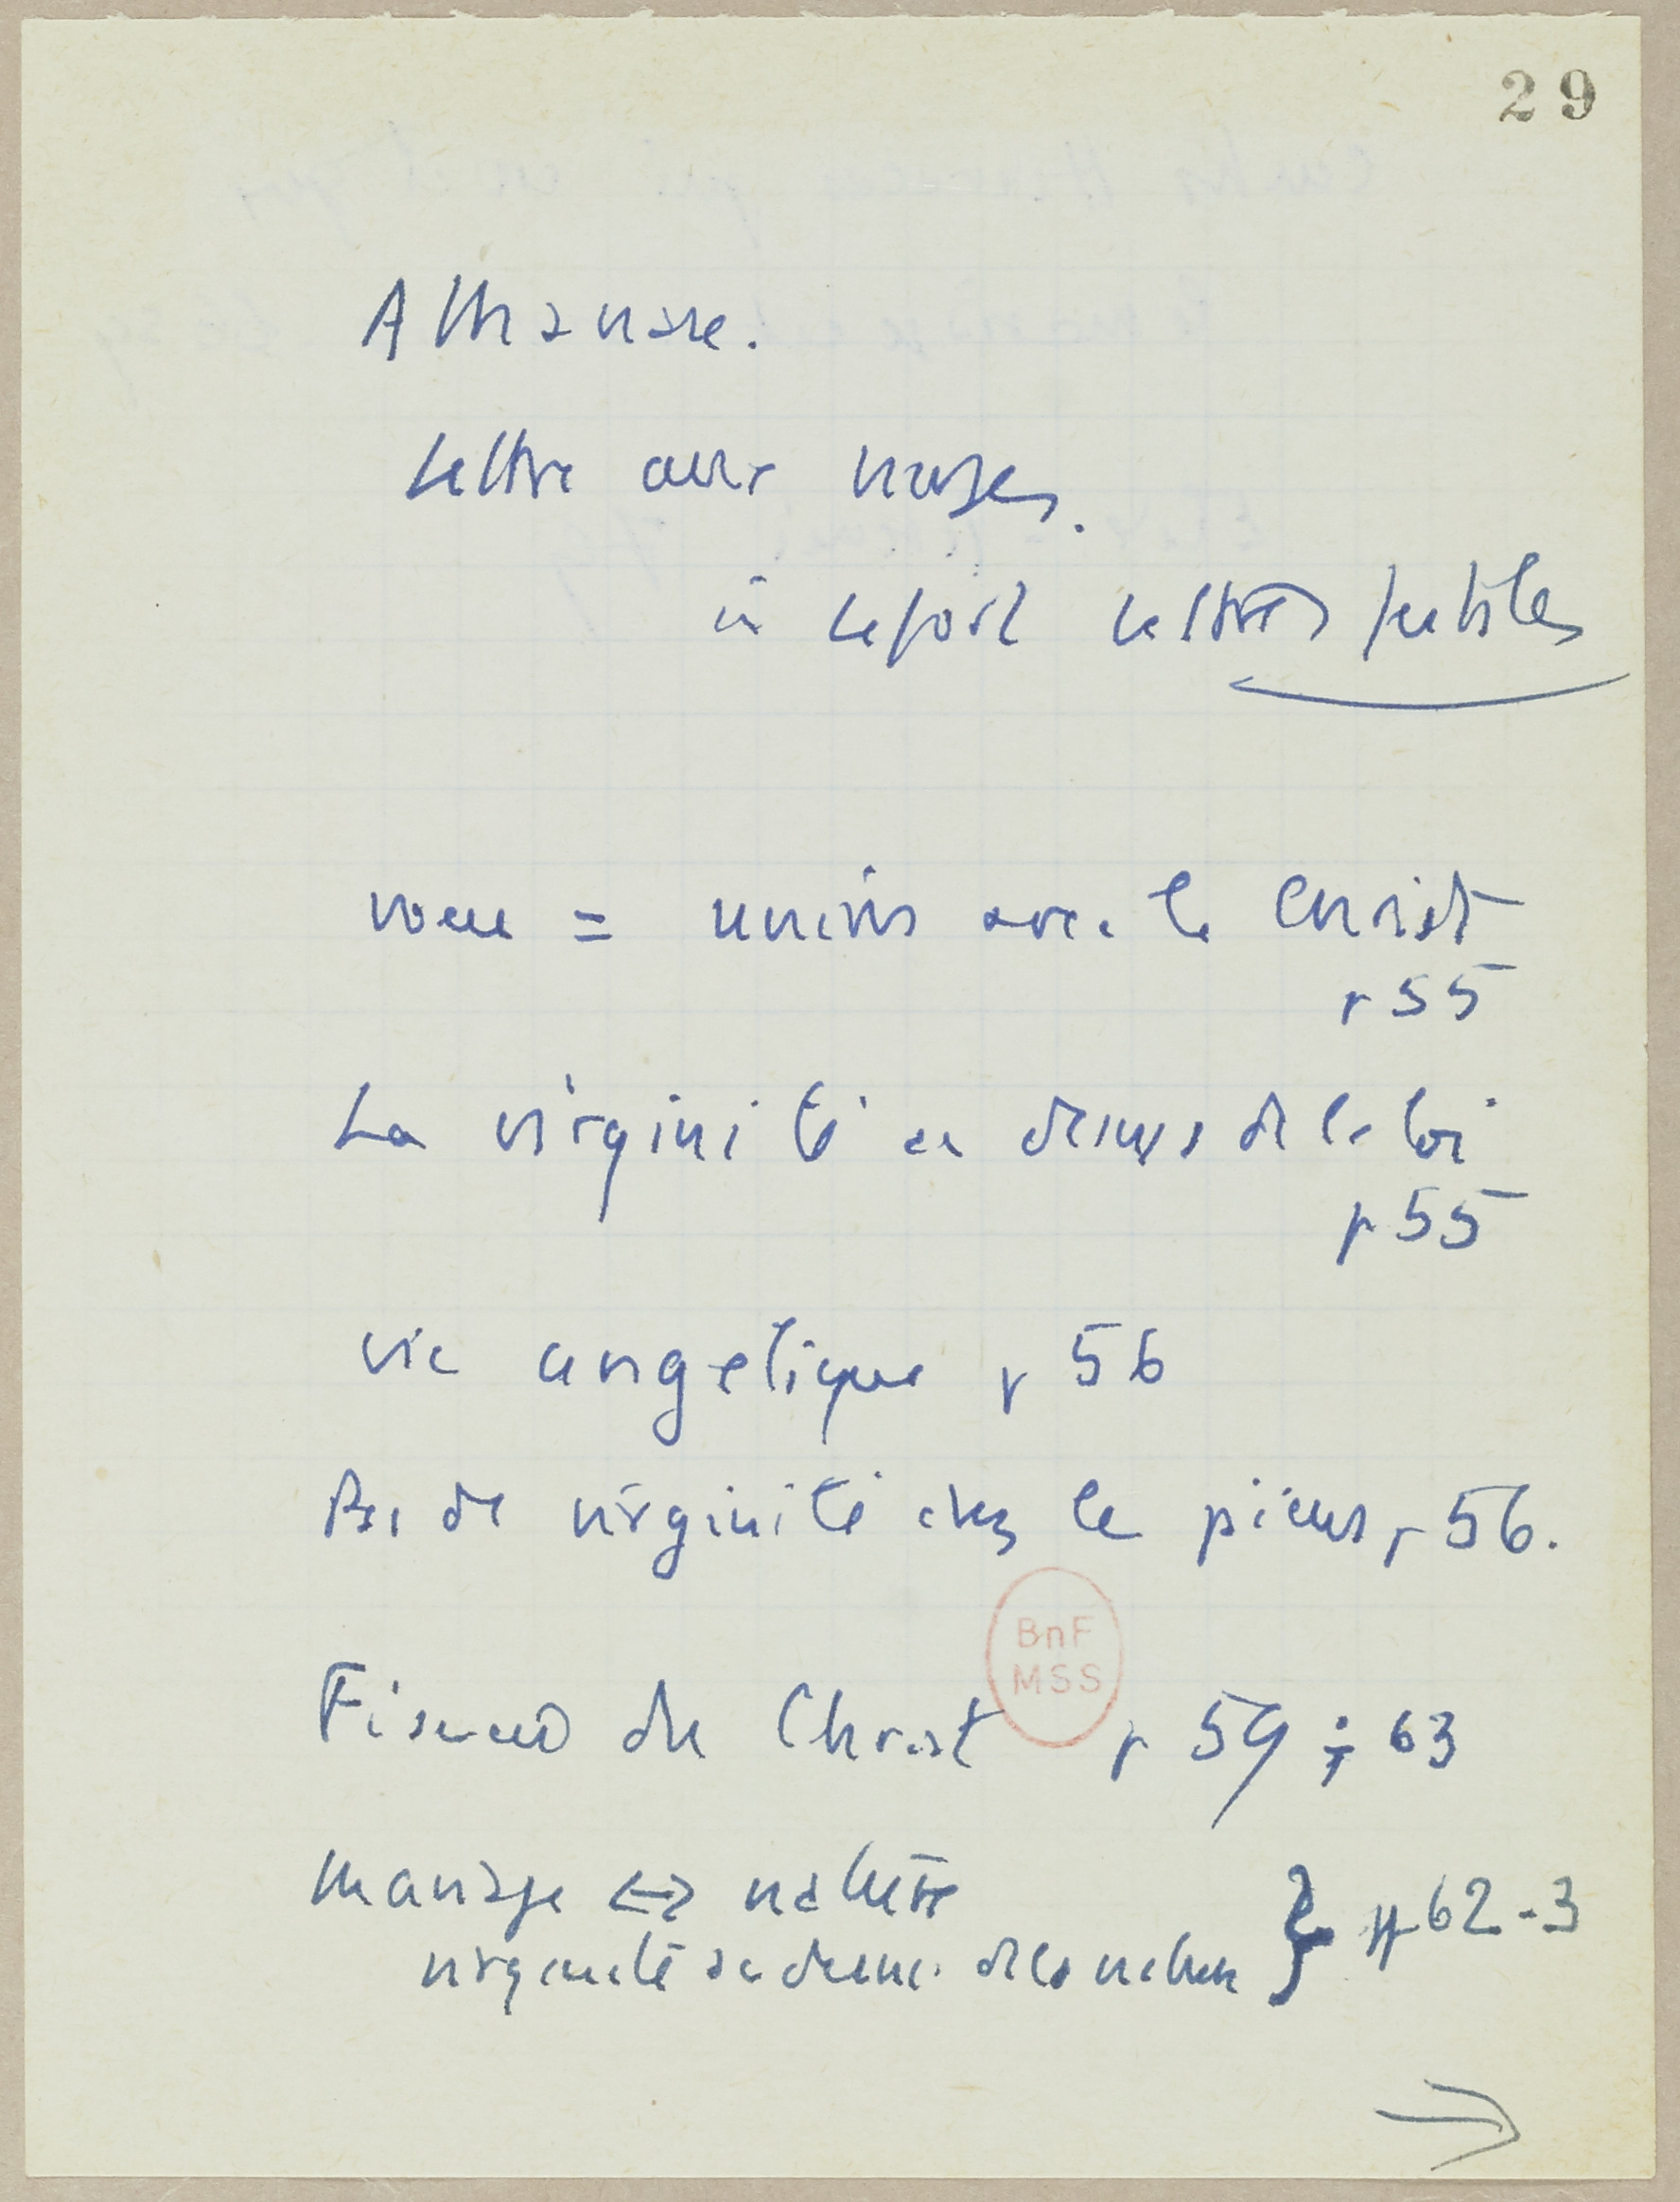 29
Athanase.
Lettre aux vierges.
in Lefort Lettres festales
voeu = union avec le Christ
p 55
La virginité au dessus de la loi
p 55
vie angélique p 56
Pas de virginité chez les païens p 56.
BnF
MSS
Fiancée du Christ p 59 ; 63
Mariage <-> nature
virginité au dessus de la nature } pp 62-3
→